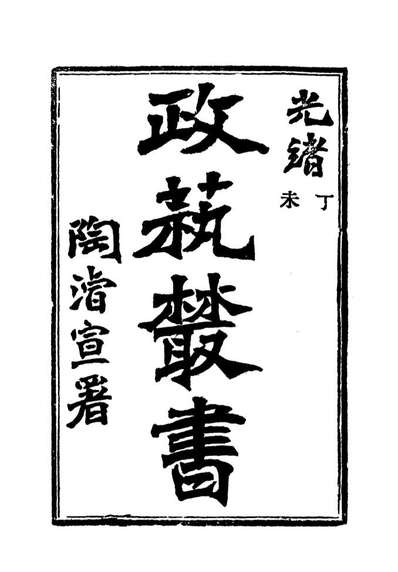 光緒
丁未
政蓺叢書
陶濬宣署